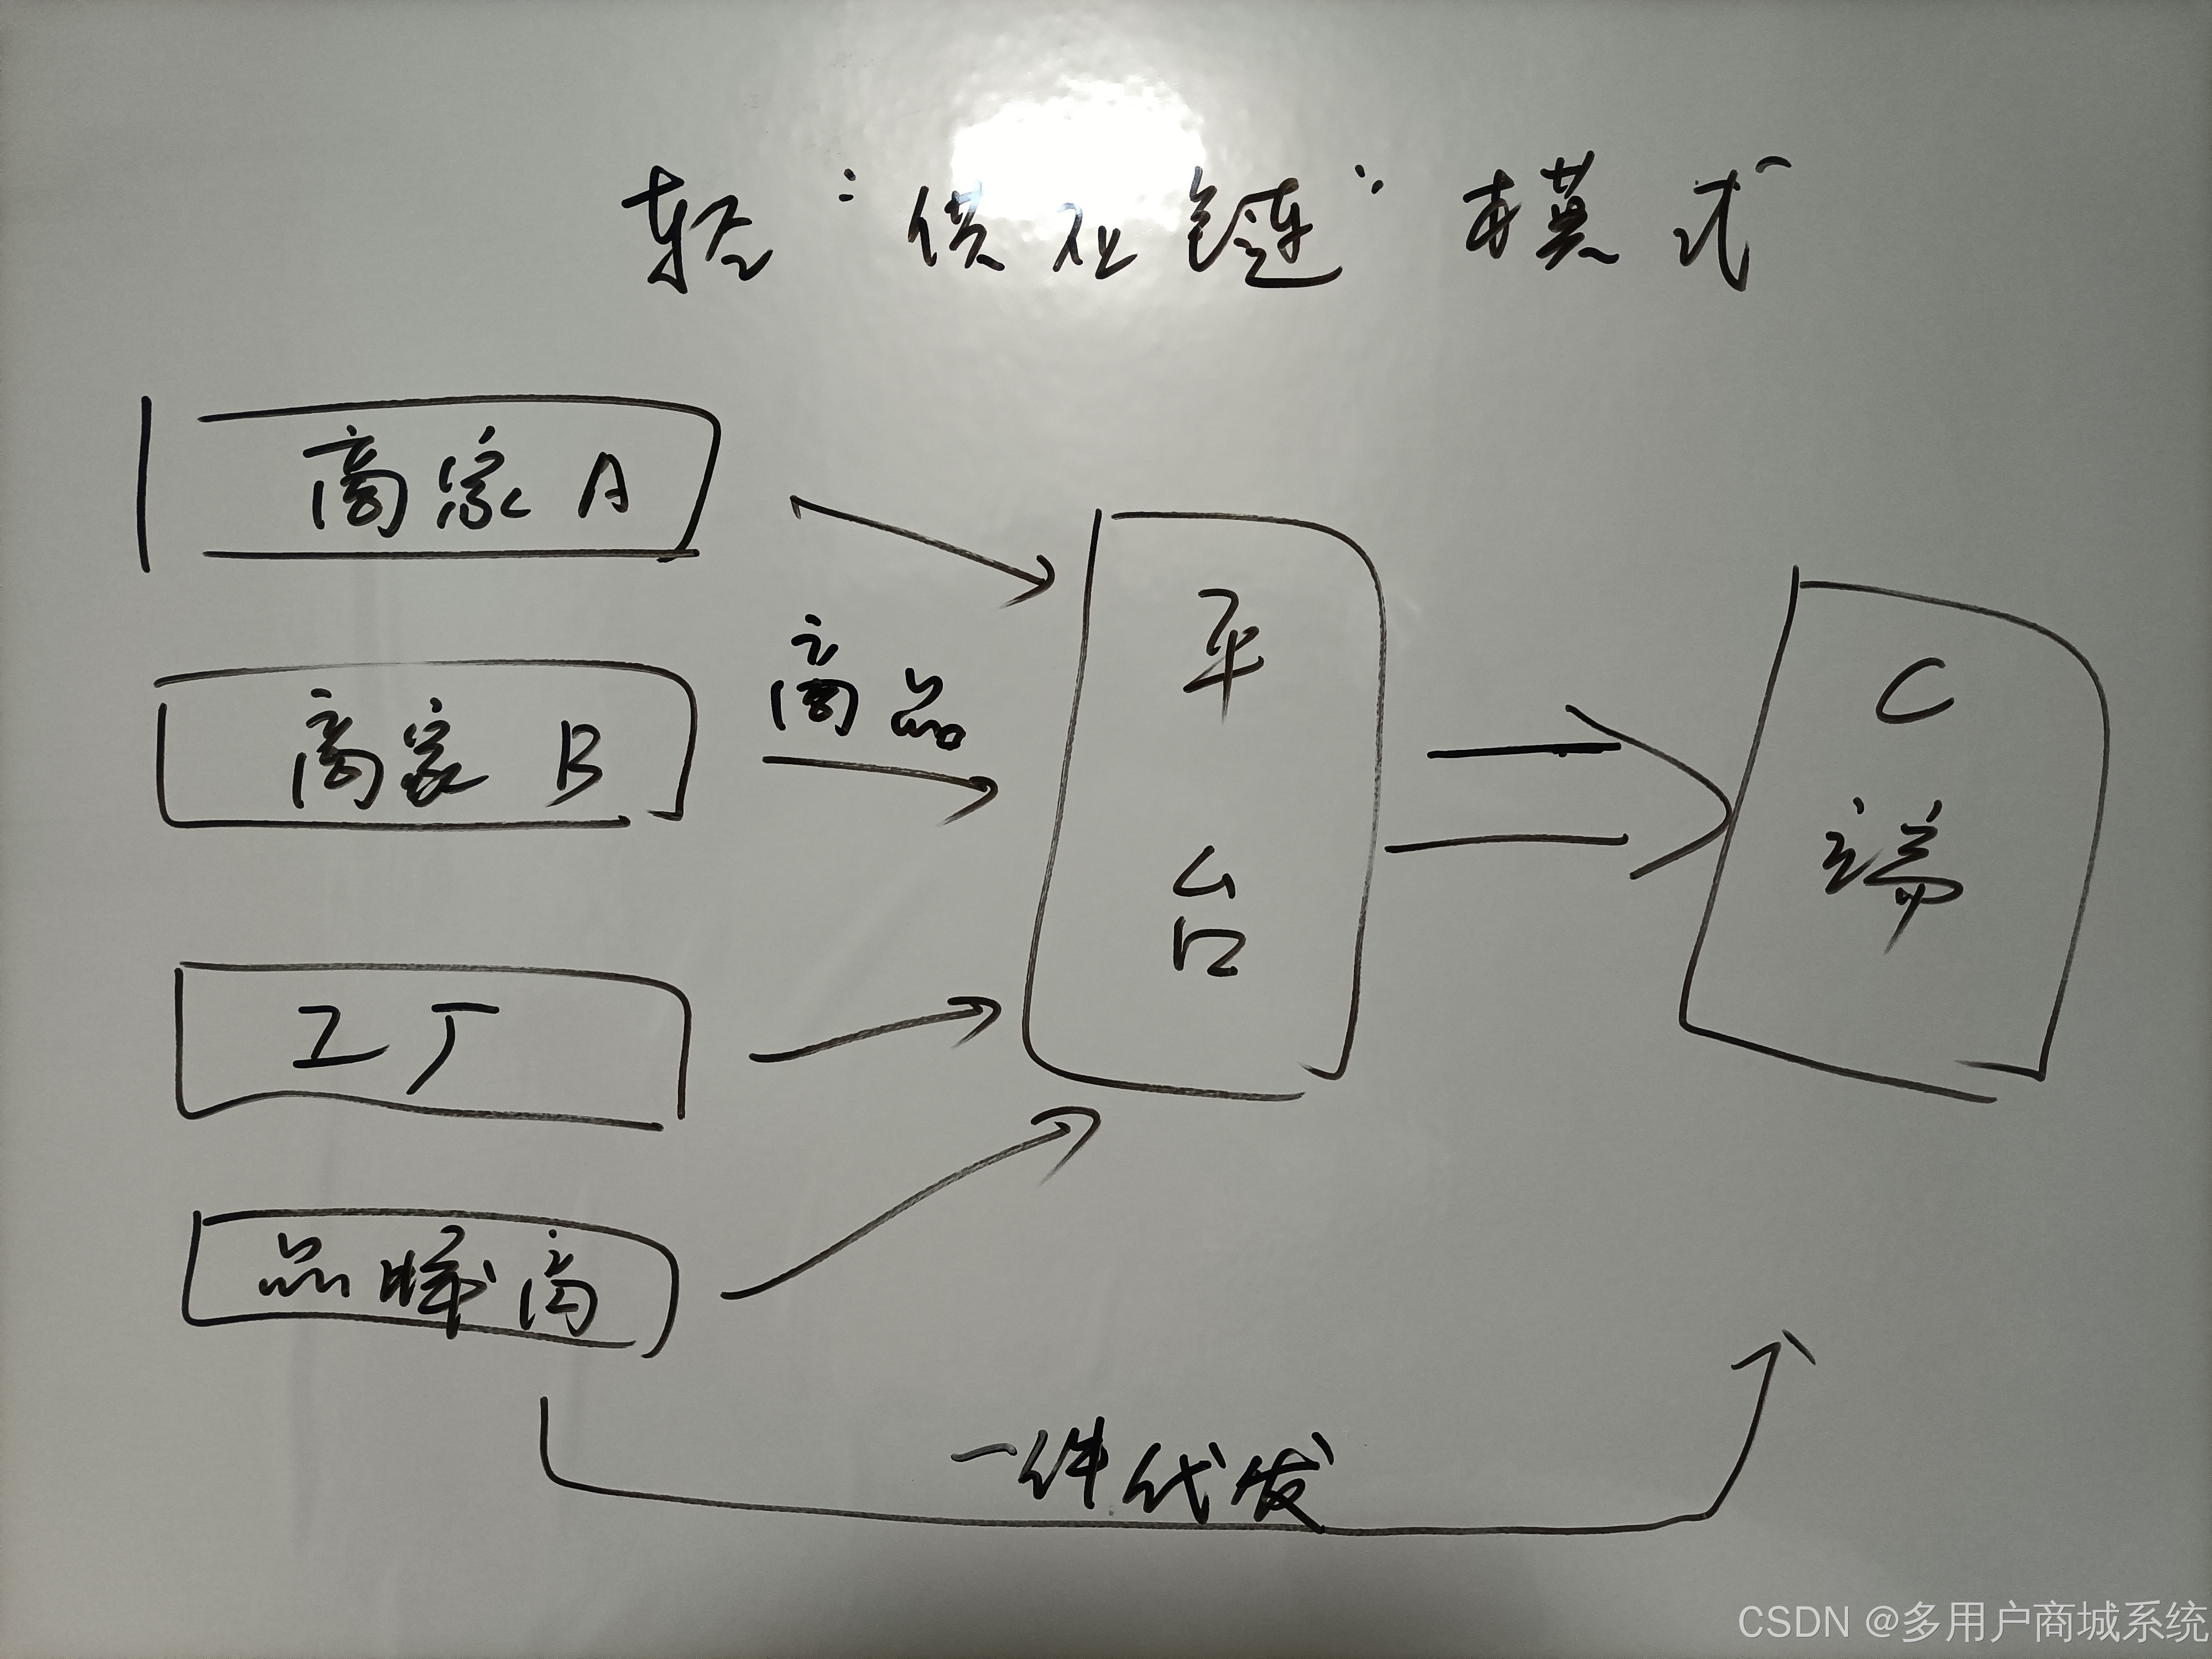 轻“供应链”模式
商家A
商品
商家B
平台
C端
工厂
品牌商
一件代发
CSDN @多用户商城系统